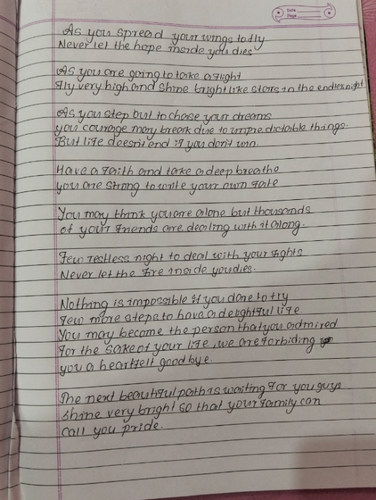 Date
Page
As you spread your wings to fly
Never let the hope inside you dies
As you are going to take a flight
Fly very high and shine bright like stars in the endless night
As you step out to chase your dreams
you courage may break due to unpredictable things.
But life doesn't end if you don't win.
Have a faith and take a deep breathe
you are strong to write your own fate
You may think you are alone but thousands
of your friends are dealing with it along.
Few restless night to deal with your fights
Never let the fire inside you dies.
Nothing is impossible if you dare to try
Few more steps to have a delightful life
You may become the person that you admired
For the sake of your life, we are forbiding
you a heartfelt goodbye.
The next beautiful path is waiting for you guys
shine very bright so that your family can
call you pride.